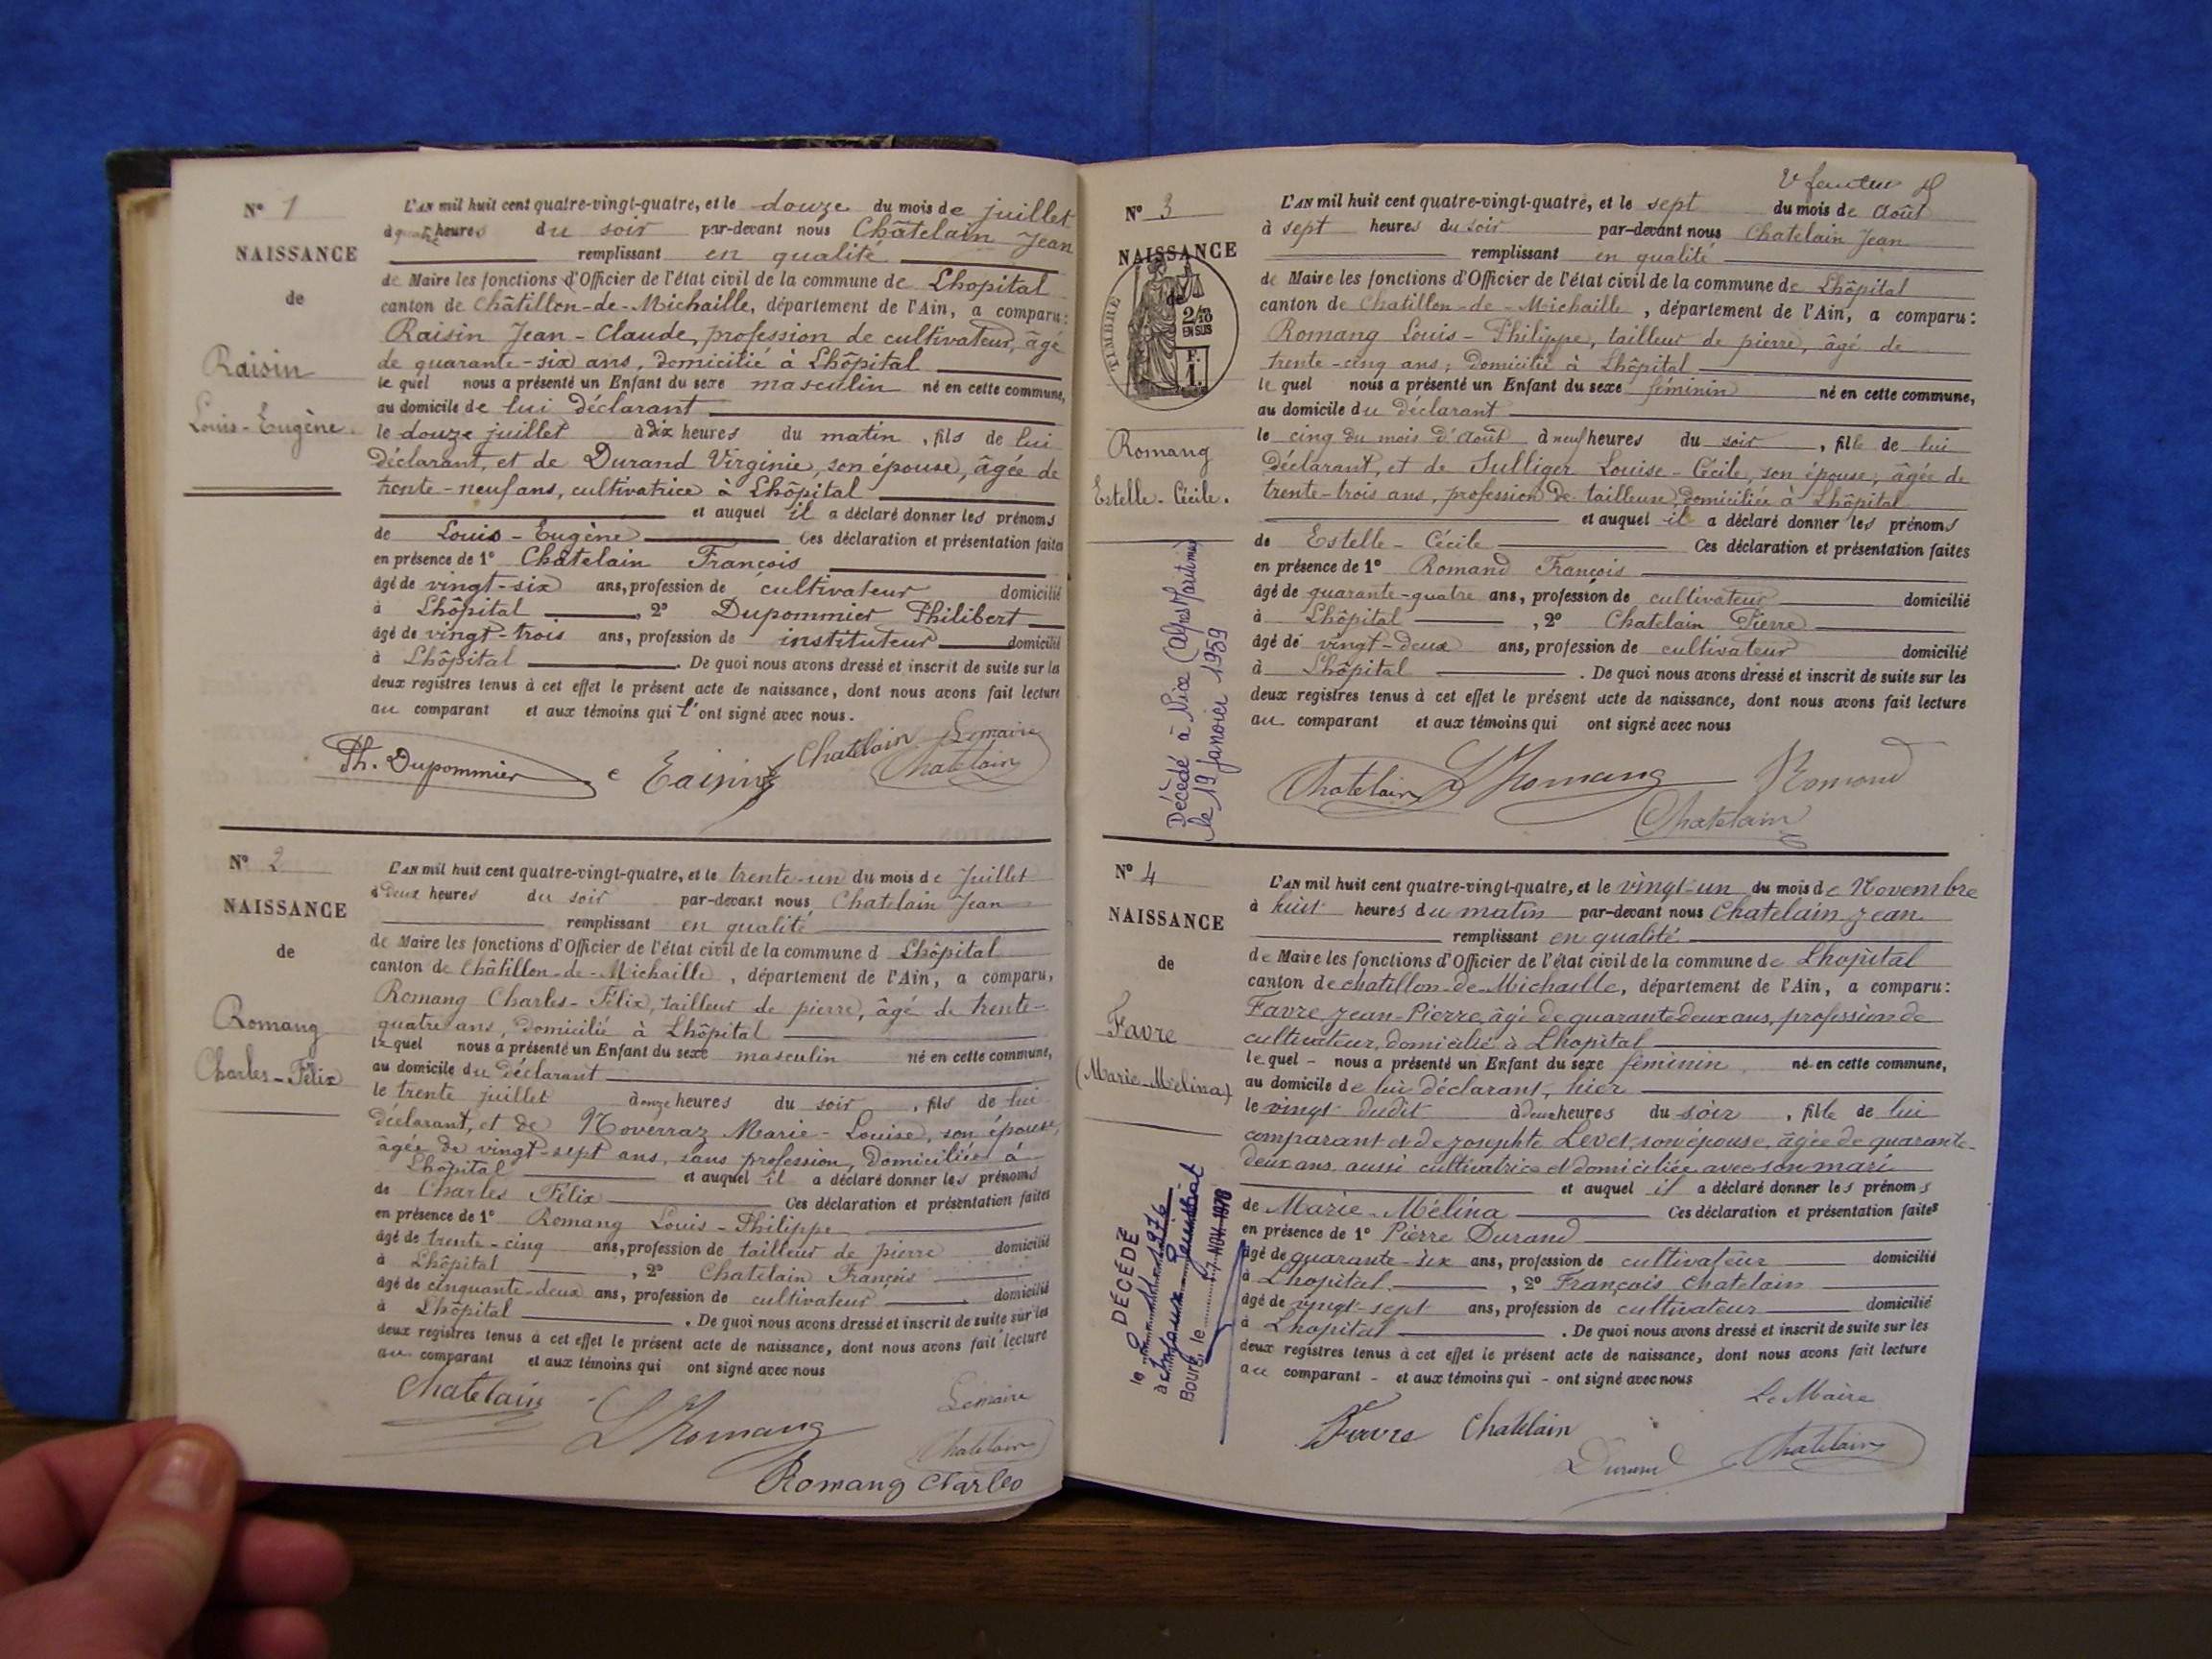 N° 1
NAISSANCE
de
Raisin
Louis-Eugène.
L'AN mil huit cent quatre-vingt-quatre, et le douze du mois de juillet
à quatre heures du soir par-devant nous Châtelain Jean
remplissant en qualité
de Maire les fonctions d'Officier de l'état civil de la commune de Lhopital
canton de Châtillon-de-Michaille, département de l'Ain, a comparu:
Raisin Jean-Claude, profession de cultivateur, âgé
de quarante-six ans, domicilié à Lhôpital
le quel nous a présenté un Enfant du sexe masculin né en cette commune,
au domicile de lui déclarant
le douze juillet à dix heures du matin, fils de lui
déclarant, et de Durand Virginie, son épouse, âgée de
trente-neuf ans, cultivatrice à Lhôpital
et auquel il a déclaré donner les prénoms
de Louis-Eugène Ces déclaration et présentation faites
en présence de 1° Chatelain François
âgé de vingt-six ans, profession de cultivateur domicilié
à Lhôpital, 2° Dupommier Philibert
âgé de vingt-trois ans, profession de instituteur domicilié
à Lhôpital. De quoi nous avons dressé et inscrit de suite sur la
deux registres tenus à cet effet le présent acte de naissance, dont nous avons fait lecture
au comparant et aux témoins qui l'ont signé avec nous.
Ph. Dupommier Chatelain Lemaire
Chatelain
N° 2
NAISSANCE
de
Romang
Charles-Félix
L'AN mil huit cent quatre-vingt-quatre, et le trente-un du mois de Juillet
à deux heures du soir par-devant nous Chatelain Jean
remplissant en qualité
de Maire les fonctions d'Officier de l'état civil de la commune d Lhôpital
canton de Châtillon-de-Michaille, département de l'Ain, a comparu,
Romang Charles-Félix, tailleur de pierre, âgé de trente-
quatre ans, domicilié à Lhôpital
le quel nous a présenté un Enfant du sexe masculin né en cette commune,
au domicile du déclarant
le trente juillet à onze heures du soir, fils de lui
déclarant, et de Noverraz Marie-Louise, son épouse,
âgée de vingt-sept ans, sans profession, domiciliée à
Lhôpital et auquel il a déclaré donner les prénoms
de Charles Félix Ces déclaration et présentation faites
en présence de 1° Romang Louis-Philippe
âgé de trente-cinq ans, profession de tailleur de pierre domicilié
à Lhôpital, 2° Chatelain François
âgé de cinquante-deux ans, profession de cultivateur domicilié
à Lhôpital. De quoi nous avons dressé et inscrit de suite sur les
deux registres tenus à cet effet le présent acte de naissance, dont nous avons fait lecture
au comparant et aux témoins qui ont signé avec nous
Chatelain L Romang Lemaire
Chatelain
Romang Charles
N° 3
NAISSANCE
de
TIMBRE
2/10
EN SUS
F.
1.
Romang
Estelle-Cécile.
Décédé à Nice (Alpes Maritimes)
le 19 janvier 1959
L'AN mil huit cent quatre-vingt-quatre, et le sept du mois de Août
à sept heures du soir par-devant nous Chatelain Jean
remplissant en qualité
de Maire les fonctions d'Officier de l'état civil de la commune de Lhôpital
canton de Chatillon-de-Michaille, département de l'Ain, a comparu:
Romang Louis-Philippe, tailleur de pierre, âgé de
trente-cinq ans, domicilié à Lhôpital
le quel nous a présenté un Enfant du sexe féminin né en cette commune,
au domicile du déclarant
le cinq du mois d'Août à neuf heures du soir, fille de lui
déclarant, et de Sulliger Louise-Cécile, son épouse, âgée de
trente-trois ans, profession de tailleuse, domiciliée à Lhôpital
et auquel il a déclaré donner les prénoms
de Estelle-Cécile Ces déclaration et présentation faites
en présence de 1° Romand François
âgé de quarante-quatre ans, profession de cultivateur domicilié
à Lhôpital, 2° Chatelain Pierre
âgé de vingt-deux ans, profession de cultivateur domicilié
à Lhôpital. De quoi nous avons dressé et inscrit de suite sur les
deux registres tenus à cet effet le présent acte de naissance, dont nous avons fait lecture
au comparant et aux témoins qui ont signé avec nous
Chatelain L Romang Romand
Chatelain
N° 4
NAISSANCE
de
Favre
(Marie-Mélina)
DÉCÉDÉ
Bourg, le 17 NOV 1976
L'AN mil huit cent quatre-vingt-quatre, et le vingt-un du mois de Novembre
à huit heures du matin par-devant nous Chatelain Jean
remplissant en qualité
de Maire les fonctions d'Officier de l'état civil de la commune de Lhopital
canton de chatillon-de-Michaille, département de l'Ain, a comparu:
Favre Jean-Pierre, âgé de quarante deux ans, profession de
cultivateur, domicilié à Lhopital
le quel - nous a présenté un Enfant du sexe féminin né en cette commune,
au domicile de lui déclarant, hier
le vingt dudit à deux heures du soir, fille de lui
comparant et de Josephte Levet, son épouse, âgée de quarante-
deux ans, aussi cultivatrice et domiciliée avec son mari
et auquel il a déclaré donner les prénoms
de Marie-Mélina Ces déclaration et présentation faites
en présence de 1° Pierre Durand
âgé de quarante-six ans, profession de cultivateur domicilié
à Lhopital, 2° François Chatelain
âgé de vingt-sept ans, profession de cultivateur domicilié
à Lhopital. De quoi nous avons dressé et inscrit de suite sur les
deux registres tenus à cet effet le présent acte de naissance, dont nous avons fait lecture
au comparant - et aux témoins qui - ont signé avec nous
Le Maire
Favre Chatelain
Durand Chatelain